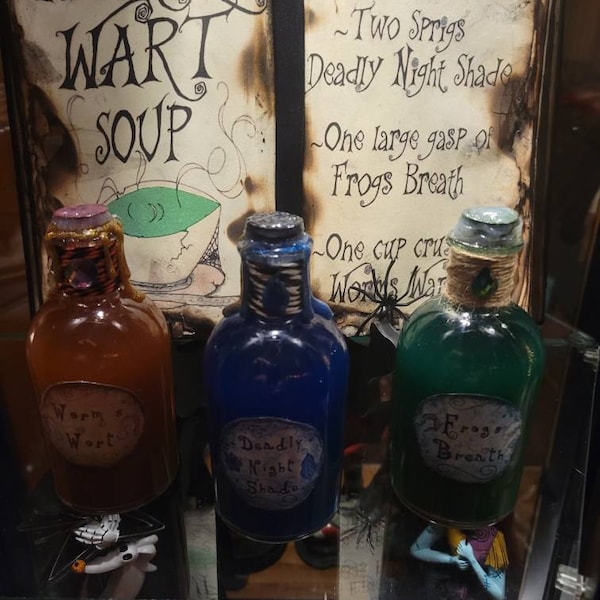 WART
SOUP
~Two Sprigs
Deadly Night Shade
~One large gasp of
Frogs Breath
~One cup
Worms
Worm s
Wort
Deadly
Night
Shade
Frogs
Breath